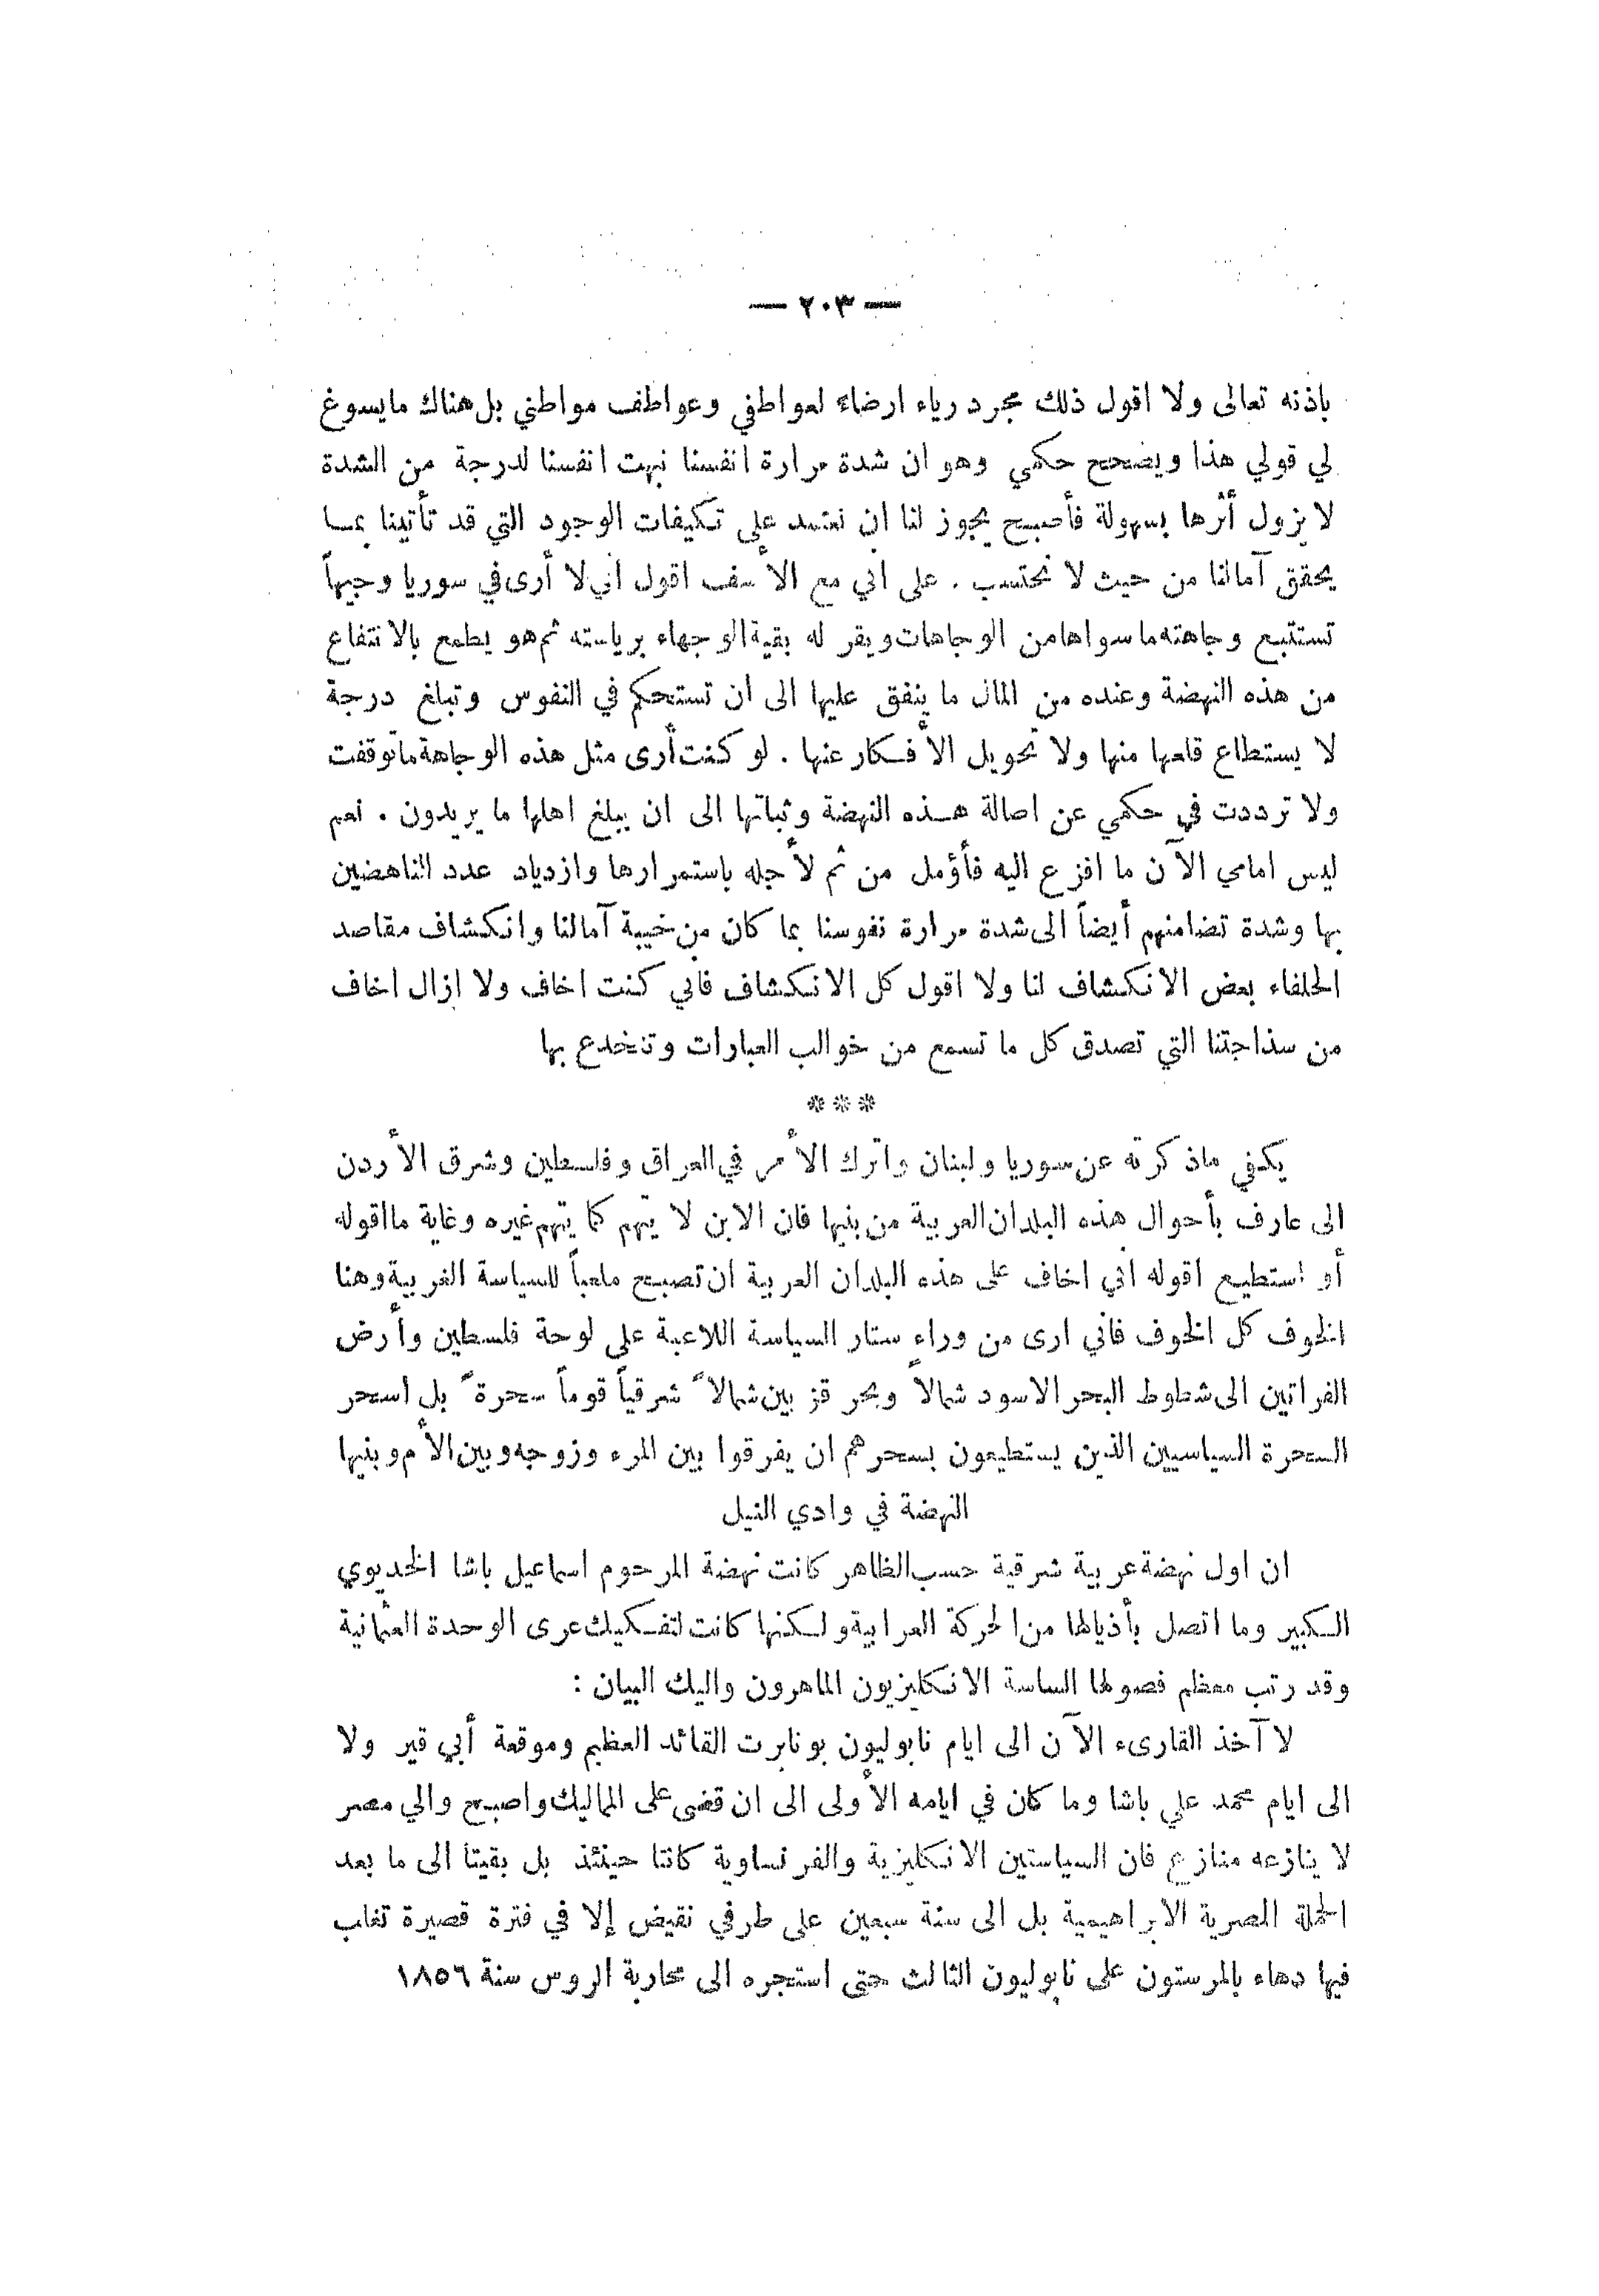 — ٢٠٣ —
باذنه تعالى ولا اقول ذلك مجرد رياء ارضاءً لعواطفي وعواطف مواطني بل هناك مايسوغ
لي قولي هذا ويصحح حكمي وهو ان شدة مرارة انفسنا نبهت انفسنا لدرجة من الشدة
لا يزول أثرها بسهولة فأصبح يجوز لنا ان نعتمد على تكيفات الوجود التي قد تأتينا بما
يحقق آمالنا من حيث لا نحتسب . على اني مع الأسف اقول اني لا أرى في سوريا وجيهاً
تستتبع وجاهته ما سواها من الوجاهات ويقر له بقية الوجهاء برياسته ثم هو يطمع بالانتفاع
من هذه النهضة وعنده من المال ما ينفق عليها الى ان تستحكم في النفوس وتبلغ درجة
لا يستطاع قلعها منها ولا تحويل الأفكار عنها . لو كنت أرى مثل هذه الوجاهة ما توقفت
ولا ترددت في حكمي عن اصالة هذه النهضة وثباتها الى ان يبلغ اهلها ما يريدون . نعم
ليس امامي الآن ما افزع اليه فأؤمل من ثم لأجله باستمرارها وازدياد عدد الناهضين
بها وشدة تضامنهم أيضاً الى شدة مرارة نفوسنا بما كان من خيبة آمالنا وانكشاف مقاصد
الحلفاء بعض الانكشاف لنا ولا اقول كل الانكشاف فاني كنت اخاف ولا ازال اخاف
من سذاجتنا التي تصدق كل ما تسمع من خوالب العبارات وتنخدع بها
* * *
يكفي ماذكرته عن سوريا ولبنان واترك الأمر في العراق وفلسطين وشرق الأردن
الى عارف بأحوال هذه البلدان العربية من بنيها فان الابن لا يتهم كما يتهم غيره وغاية ما اقوله
أو استطيع اقوله اني اخاف على هذه البلدان العربية ان تصبح ملعباً للسياسة الغربية وهنا
الخوف كل الخوف فاني ارى من وراء ستار السياسة اللاعبة على لوحة فلسطين وأرض
الفراتين الى شطوط البحر الاسود شمالاً وبحر قزبين شمالاً شرقياً قوماً سحرة بل اسحر
السحرة السياسيين الذين يستطيعون بسحرهم ان يفرقوا بين المرء وزوجه وبين الأم وبنيها
النهضة في وادي النيل
ان اول نهضة عربية شرقية حسب الظاهر كانت نهضة المرحوم اسماعيل باشا الخديوي
الكبير وما اتصل بأذيالها من الحركة العرابية ولكنها كانت لتفكيك عرى الوحدة العثمانية
وقد رتب معظم فصولها الساسة الانكليزيون الماهرون واليك البيان :
لا آخذ القارىء الآن الى ايام نابوليون بونابرت القائد العظيم وموقعة أبي قير ولا
الى ايام محمد علي باشا وما كان في ايامه الأولى الى ان قضى على المماليك واصبح والي مصر
لا ينازعه منازع فان السياستين الانكليزية والفرنساوية كانتا حينئذ بل بقيتا الى ما بعد
الحملة المصرية الابراهيمية بل الى سنة سبعين على طرفي نقيض إلا في فترة قصيرة تغلب
فيها دهاء بالمرستون على نابوليون الثالث حتى استجره الى محاربة الروس سنة ١٨٥٦